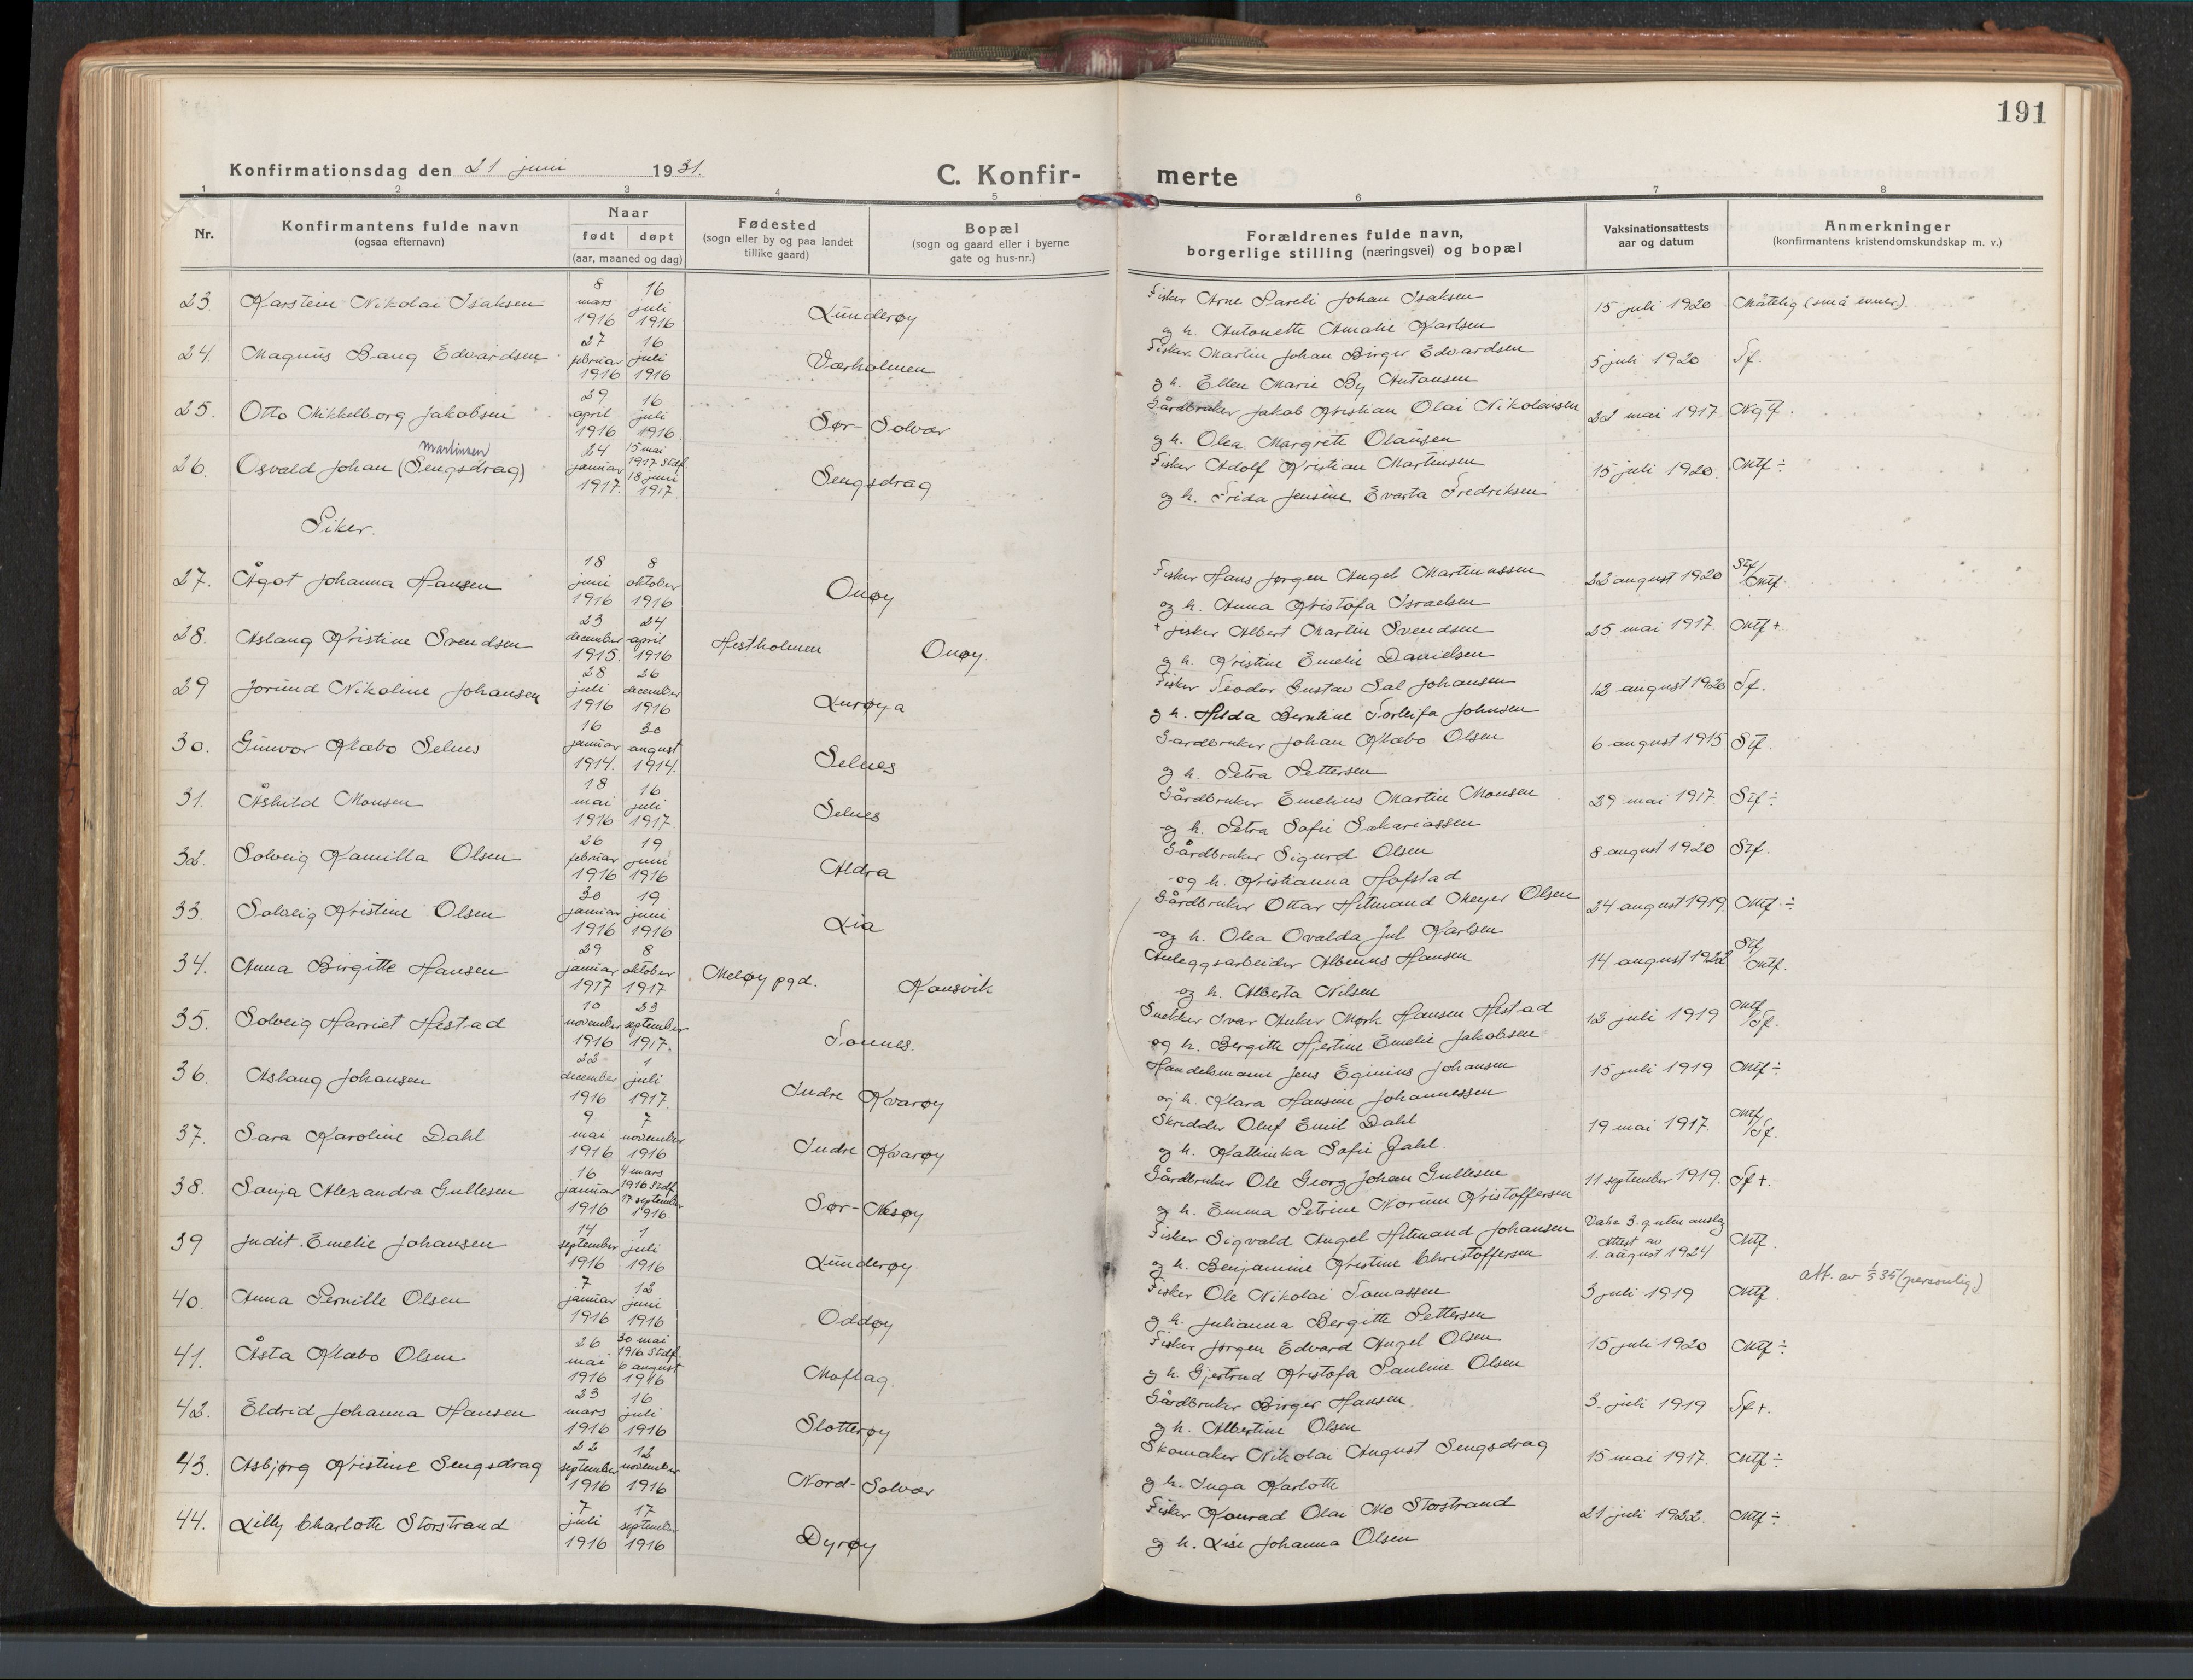 191
Konfirmationsdag den 21 juni 1931.
C. Konfir- merte
1 2 3 4 5 6 7 8
Nr.
Konfirmantens fulde navn
(ogsaa efternavn)
Naar
født døpt
(aar, maaned og dag)
Fødested
(sogn eller by og paa landet
tillike gaard)
Bopæl
(sogn og gaard eller i byerne
gate og hus-nr.)
Forældrenes fulde navn,
borgerlige stilling (næringsvei) og bopæl
Vaksinationsattests
aar og datum
Anmerkninger
(konfirmantens kristendomskundskap m. v.)
23. Karstein Nikolai Isaksen 8 mars 1916 16 juli 1916 Lunderøy Fisker Arne Pareli Johan Isaksen 15 juli 1920 Måtelig (små evner).
og h. Antonette Amalie Karlsen
24. Magnus Bang Edvardsen 27 februar 1916 16 juli 1916 Værholmen Fisker Martin Johan Birger Edvardsen 5 juli 1920 Tf.
og h. Ellen Marie By Antonsen
25. Otto Mikkelborg Jakobsen 29 april 1916 16 juli 1916 Sør-Solvær Gårdbruker Jakob Kristian Olai Nikolaisen 22 mai 1917
og h. Olea Margrete Olausen
26. Osvald Johan (Sengsdrag) Martinsen 24 januar 1917. 15 mai 1917 Stdf. 18 juni 1917 Sengsdrag Fisker Adolf Kristian Martinsen 15 juli 1920. Mtf ÷
og h. Frida Jensine Evarta Fredriksen
Piker.
27. Ågot Johanna Hansen 18 juni 1916 8 oktober 1916 Onøy Fisker Hans Jørgen Angel Martinussen 22 august 1920 Stf/Mtf.
og h. Anna Kristofa Israelsen
28. Aslaug Kristine Svendsen 23 december 1915. 24 april 1916 Hestholmen Onøy. + fisker Albert Martin Svendsen 25 mai 1917. Mtf +.
og h. Kristine Emelie Danielsen
29 Jorund Nikoline Johansen 28 juli 1916 26 december 1916 Lurøya Fisker Teodor Gustav Sal Johansen 12 august 1920 Tf.
og h. Hilda Berntine Torleifa Johnsen
30. Gunvor Klæbo Selnes 16 januar 1914. 30 august 1914. Selnes Gårdbruker Johan Klæbo Olsen 6 august 1915 Stf.
og h. Petra Pettersen
31. Åshild Monsen 18 mai 1916 16 juli 1917. Selnes Gårdbruker Emelius Martin Monsen 29 mai 1917. Stf ÷
og h. Petra Sofie Sakariassen
32. Solveig Kamilla Olsen 26 februar 1916 19 juni 1916 Aldra Gårdbruker Sigurd Olsen 8 august 1920 Stf.
og h. Kristianna Hofstad
33. Solveig Kristine Olsen 30 januar 1916 19 juni 1916 Lia Gårdbruker Ottar Hilmand Meyer Olsen 24 august 1919. Mtf ÷
og h. Olea Ovalda Jul Karlsen
34. Anna Birgitte Hansen 29 januar 1917 8 oktober 1917 Meløy pgd. Konsvik Anleggsarbeider Albinus Hansen 14 august 1922 Stf/Mtf.
og h. Alberta Nilsen
35. Solveig Harriet Hestad 10 november 1916 23 september 1917. Tonnes. Snekker Ivar Anker Mørk Hansen Hestad 12 juli 1919 Mtf/Tf.
og h. Bergitte Hjertine Emelie Jakobsen
36. Aslaug Johansen 22 december 1916 1 juli 1917. Indre Kvarøy Handelsmann Jens Eginius Johansen 15 juli 1919 Mtf ÷
og h. Klara Hansine Johannessen
37. Sara Karoline Dahl 9 mai 1916 7 november 1916 Indre Kvarøy Skredder Oluf Emil Dahl 19 mai 1917. Mtf/Tf.
og h. Kattinka Sofie Dahl.
38. Sonja Alexandra Gullesen 16 januar 1916 4 mars 1916 Stdf. 17 september 1916. Sør-Nesøy Gårdbruker Ole Georg Johan Gullesen 11 september 1919. Tf +.
og h. Emma Petrine Norum Kristoffersen
39 Judit Emelie Johansen 14 september 1916 1 juli 1916 Lunderøy Fisker Sigvald Angel Hilmand Johansen Vaks 3. g uten anslag Attest av 1. august 1924 Mtf.
og h. Benjamine Kristine Christoffersen
40. Anna Pernille Olsen 7 januar 1916 12 juni 1916 Oddøy Fisker Ole Nikolai Tomassen 3 juli 1919 Mtf. att. av 1/5 35 (personlig)
og h. Julianna Bergitte Pettersen
41. Åsta Klæbo Olsen 26 mai 1916 30 mai 1916 Stdf. 6 august 1916 Moflag. Fisker Jørgen Edvard Angel Olsen 15 juli 1920 Mtf ÷
og h. Gjertrud Kristofa Pauline Olsen
42. Eldrid Johanna Hansen 23 mars 1916 16 juli 1916 Slotterøy Gårdbruker Birger Hansen. 3. juli 1919 Tf +.
og h. Albertine Olsen
43. Asbjørg Kristine Sengsdrag 22 september 1916 12 november 1916 Nord-Solvær Skomaker Nikolai August Sengsdrag 15 mai 1917. Mtf ÷
og h. Inga Karlotte
44. Lilly Charlotte Storstrand 7 juli 1916 17 september 1916 Dyrøy Fisker Konrad Olai Mo Storstrand 21 juli 1922. Mtf ÷
og h. Lise Johanna Olsen